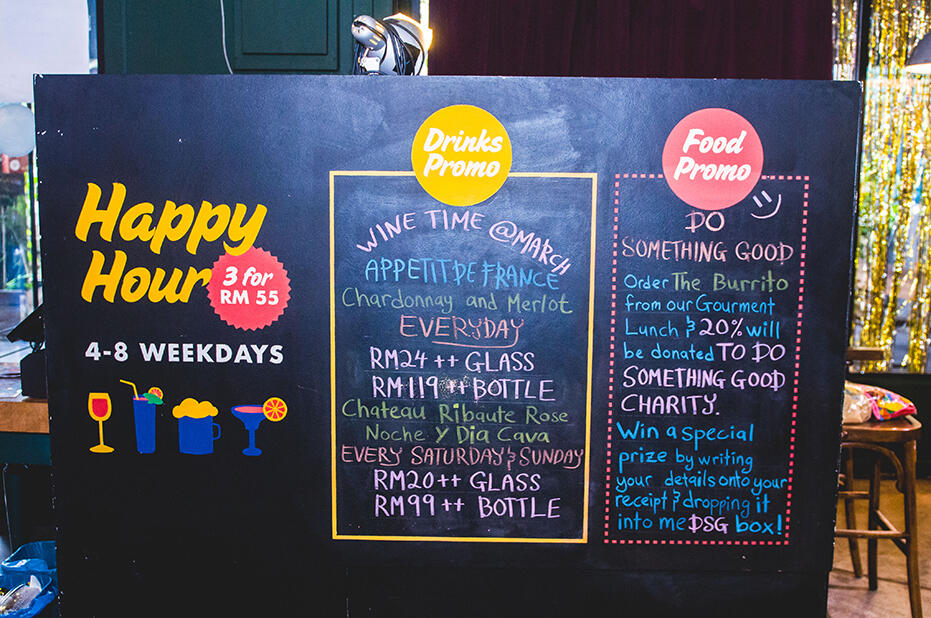 Happy
Hour
3 for
RM 55
4-8 WEEKDAYS
Drinks
Promo
WINE TIME @MARCH
APPETIT DE FRANCE
Chardonnay and Merlot
EVERYDAY
RM24++ GLASS
RM119++ BOTTLE
Chateau Ribaute Rose
Noche Y Dia Cava
EVERY SATURDAY & SUNDAY
RM20++ GLASS
RM99++ BOTTLE
Food
Promo
DO
SOMETHING GOOD
Order The Burrito
from our Gourment
Lunch & 20% will
be donated TO DO
SOMETHING GOOD
CHARITY.
Win a special
prize by writing
your details onto your
receipt & dropping it
into me DSG box!